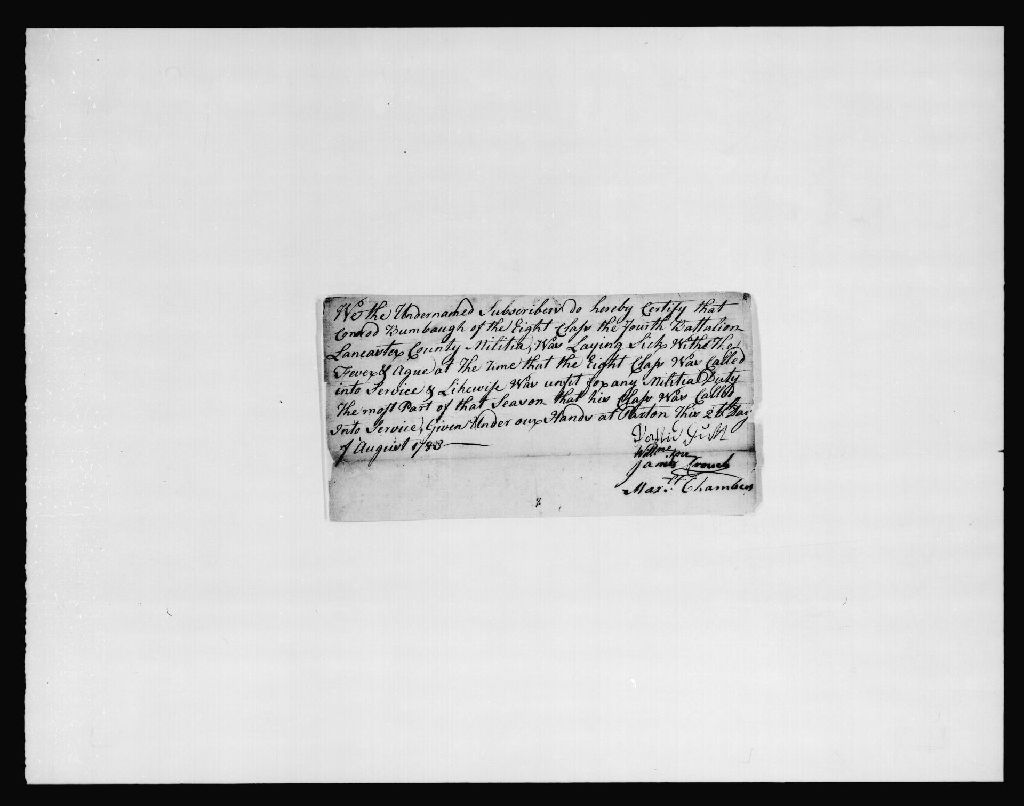 We the Undernamed Subscribers do hereby Certify that
Conrod Bumbaugh of the Eight Class the Fourth Battalion
Lancaster County Militia, Was Laying Sick With the
Fever & Ague at The time that the Eight Class Was Called
into Service & Likewise Was unfit for any Militia Duty
The most Part of that Season that his Class Was Called
Into Service, Given Under our Hands at Paxton this 26 Day
of August 1783
James Crouch
Max.ll Chambers